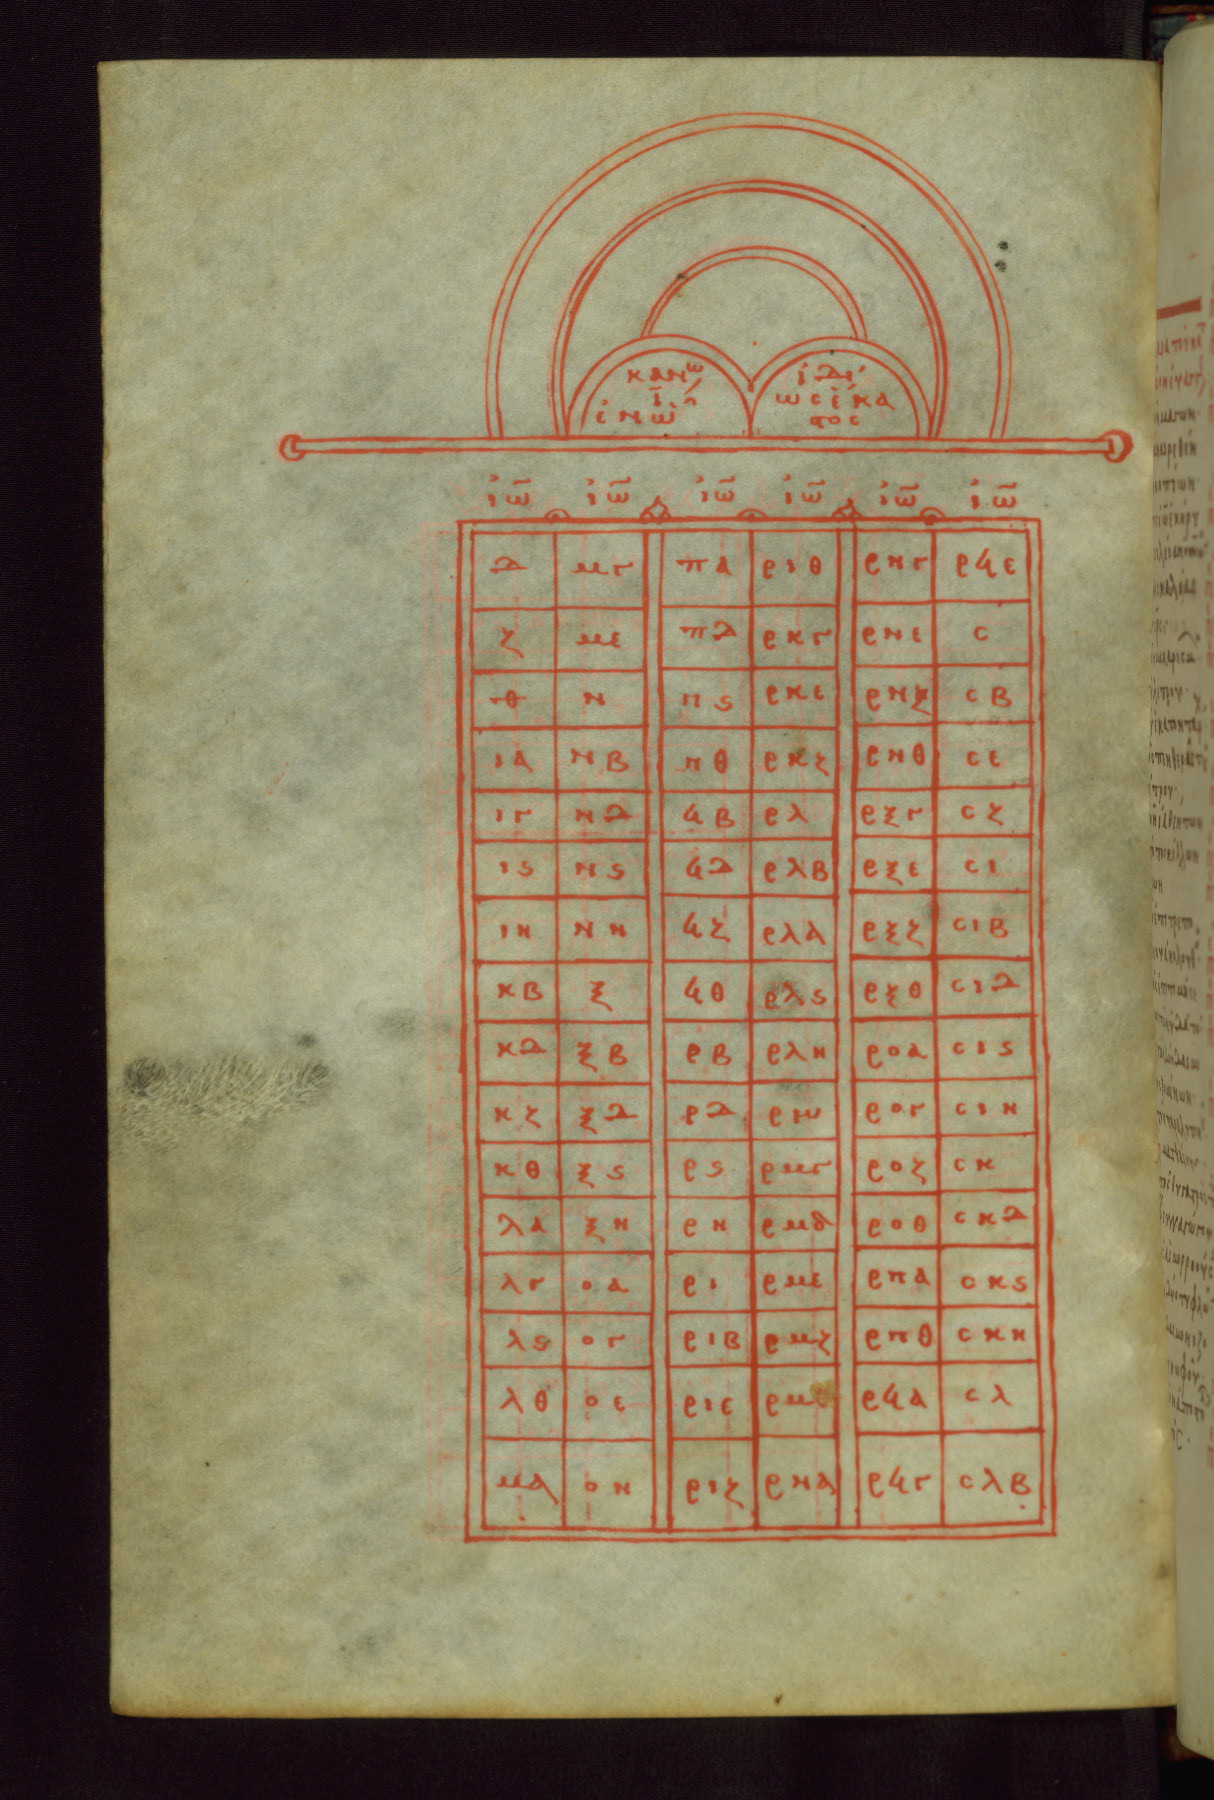 κανω
ι
ἐν ὧ
ἰδί
ως ἕκα
στος
ἰω ἰω ἰω ἰω ἰω ἰω
δ μγ πα ριθ ρνγ ρϟε
ζ με πδ ρκγ ρνε ς
θ ν πϛ ρκε ρνζ σβ
ια νβ πθ ρκζ ρνθ σε
ιγ νδ ϟβ ρλ ρξγ σζ
ιϛ νϛ ϟδ ρλβ ρξε σι
ιη νη ϟζ ρλδ ρξζ σιβ
κβ ξ ϟθ ρλϛ ρξθ σιδ
κδ ξβ ρβ ρλη ροα σιϛ
κζ ξδ ρδ ρμ ρογ σιη
κθ ξϛ ρϛ ρμγ ροζ σκ
λα ξη ρη ρμδ ροθ σκδ
λγ οα ρι ρμε ρπα σκϛ
λϛ ογ ριβ ρμζ ρπθ σκη
λθ οε ριε ρϟα σλ
μα οη ριζ ρνα ρϟγ σλβ